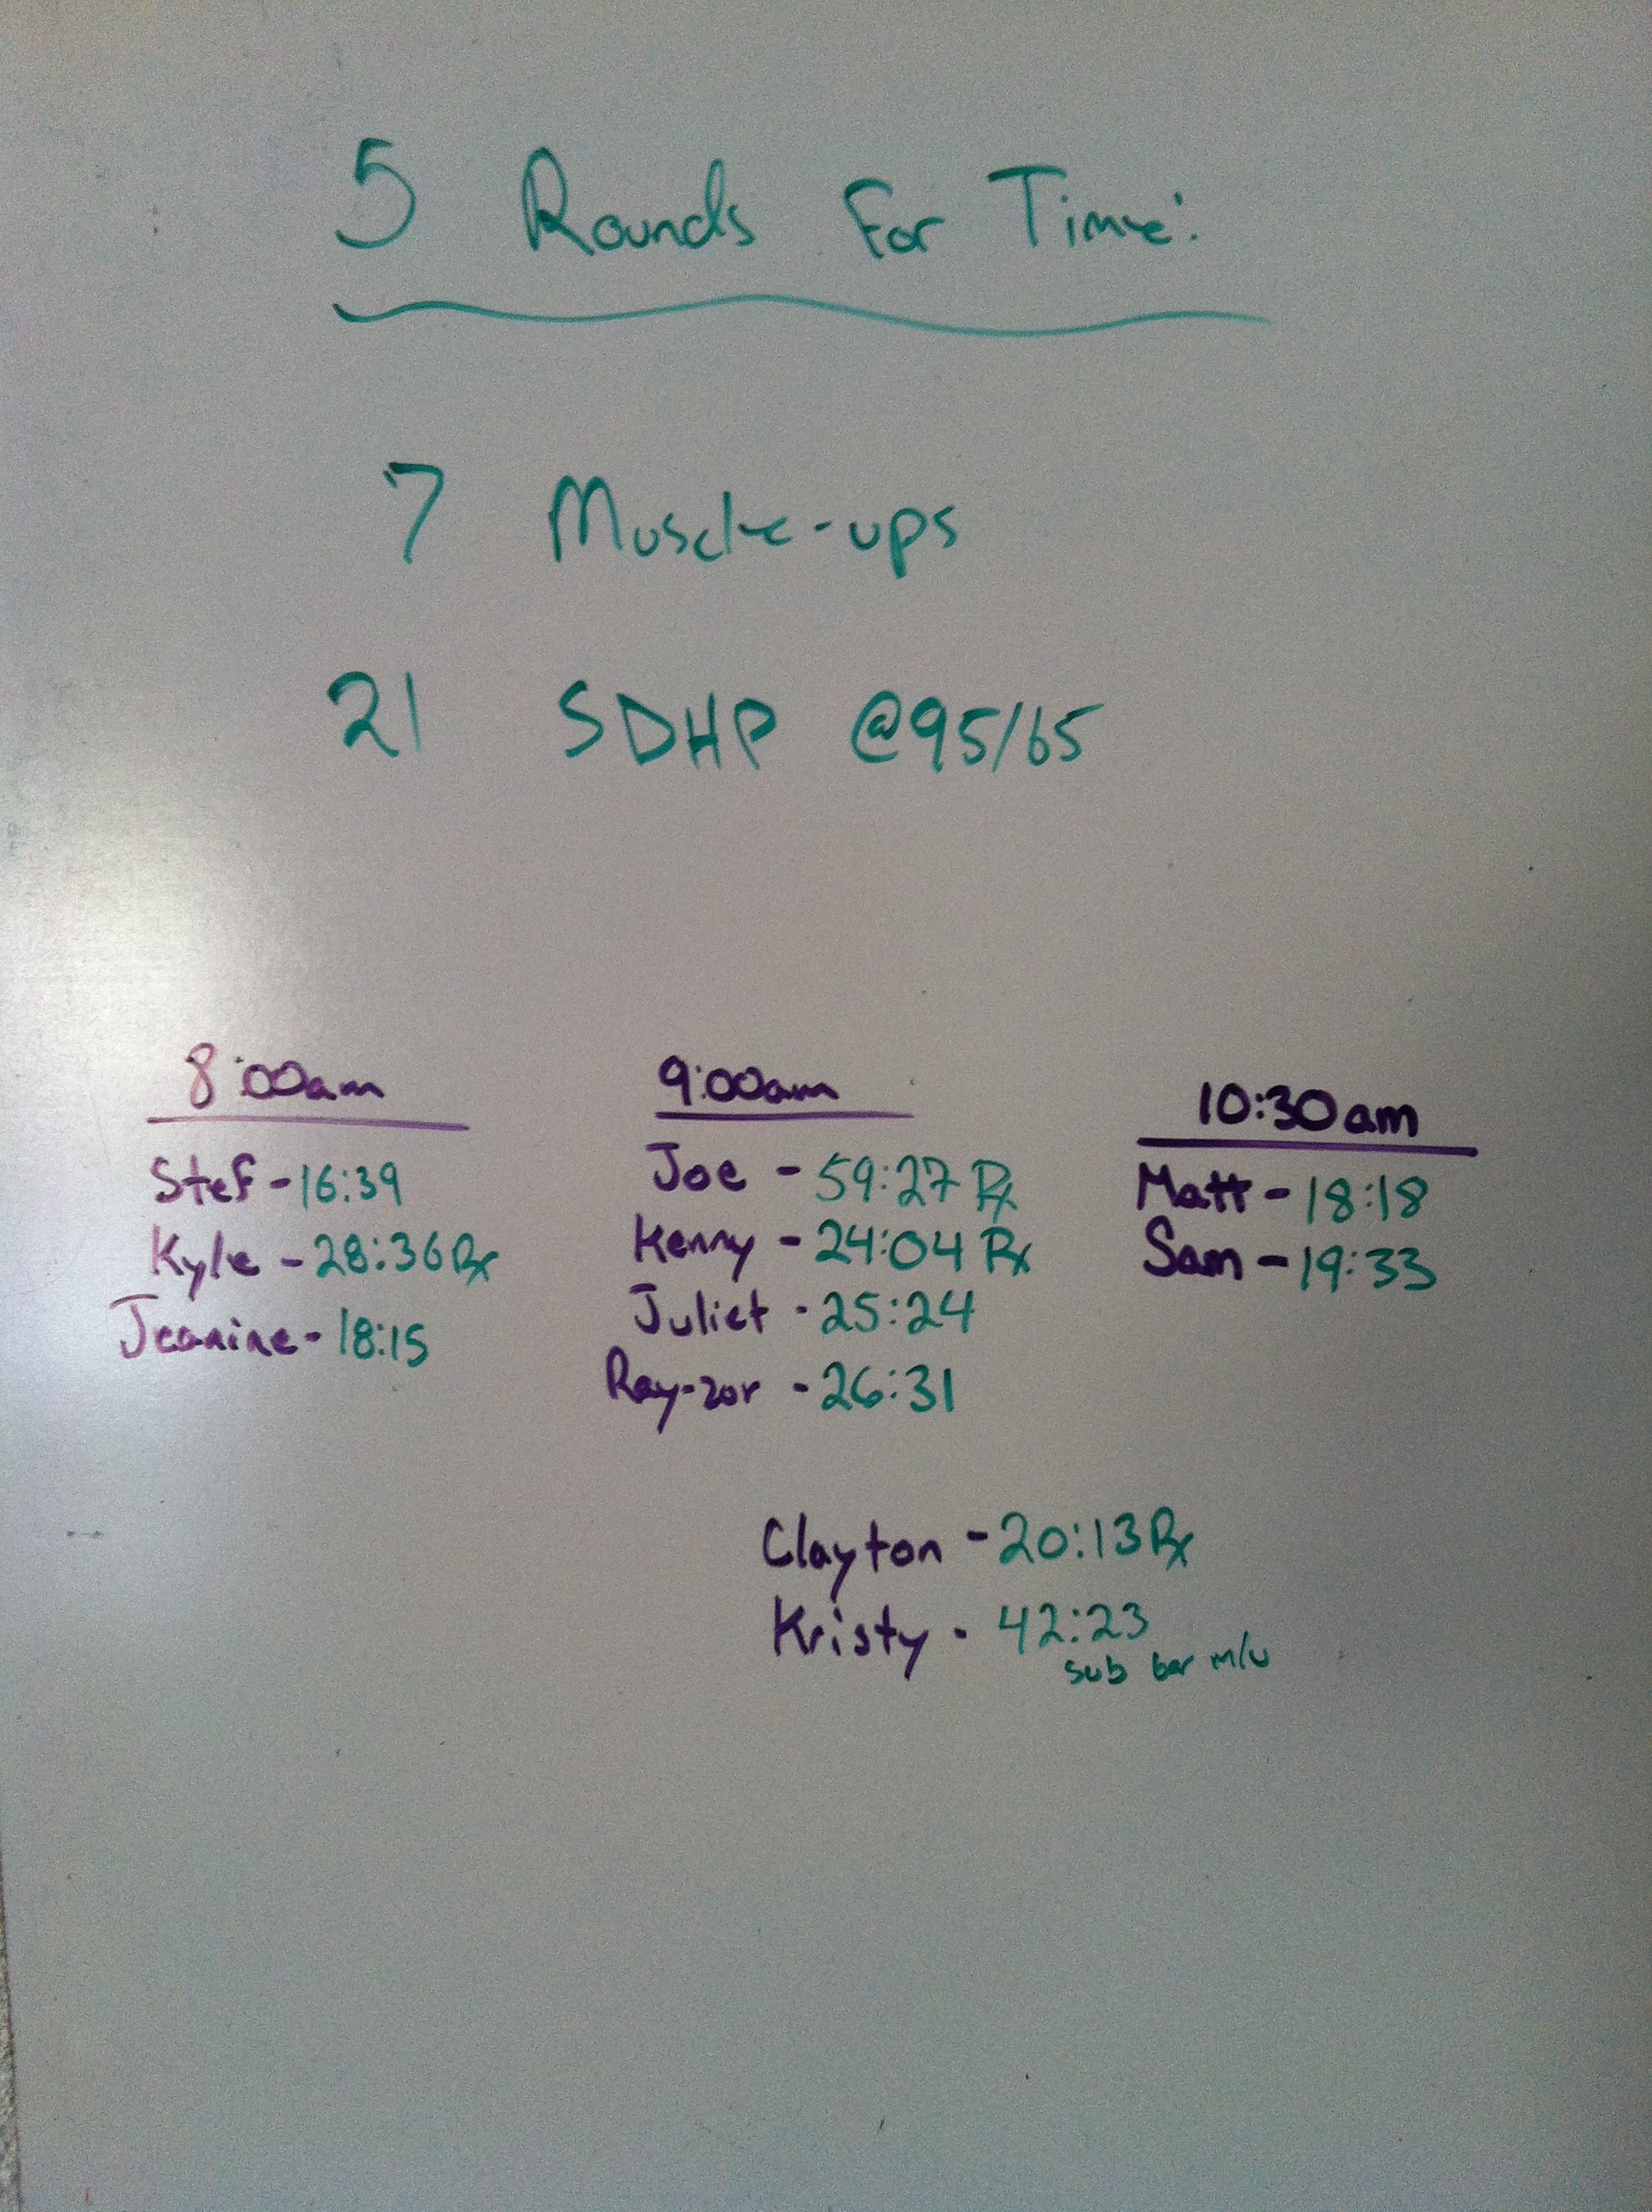 5 Rounds For Time:
7 Muscle-ups
21 SDHP @95/65
8:00am
Stef - 16:39
Kyle - 28:36 Rx
Jeanine - 18:15
9:00am
Joe - 59:27 Rx
Kenny - 24:04 Rx
Juliet - 25:24
Ray-zor - 26:31
10:30am
Matt - 18:18
Sam - 19:33
Clayton - 20:13 Rx
Kristy - 42:23
sub bar m/u